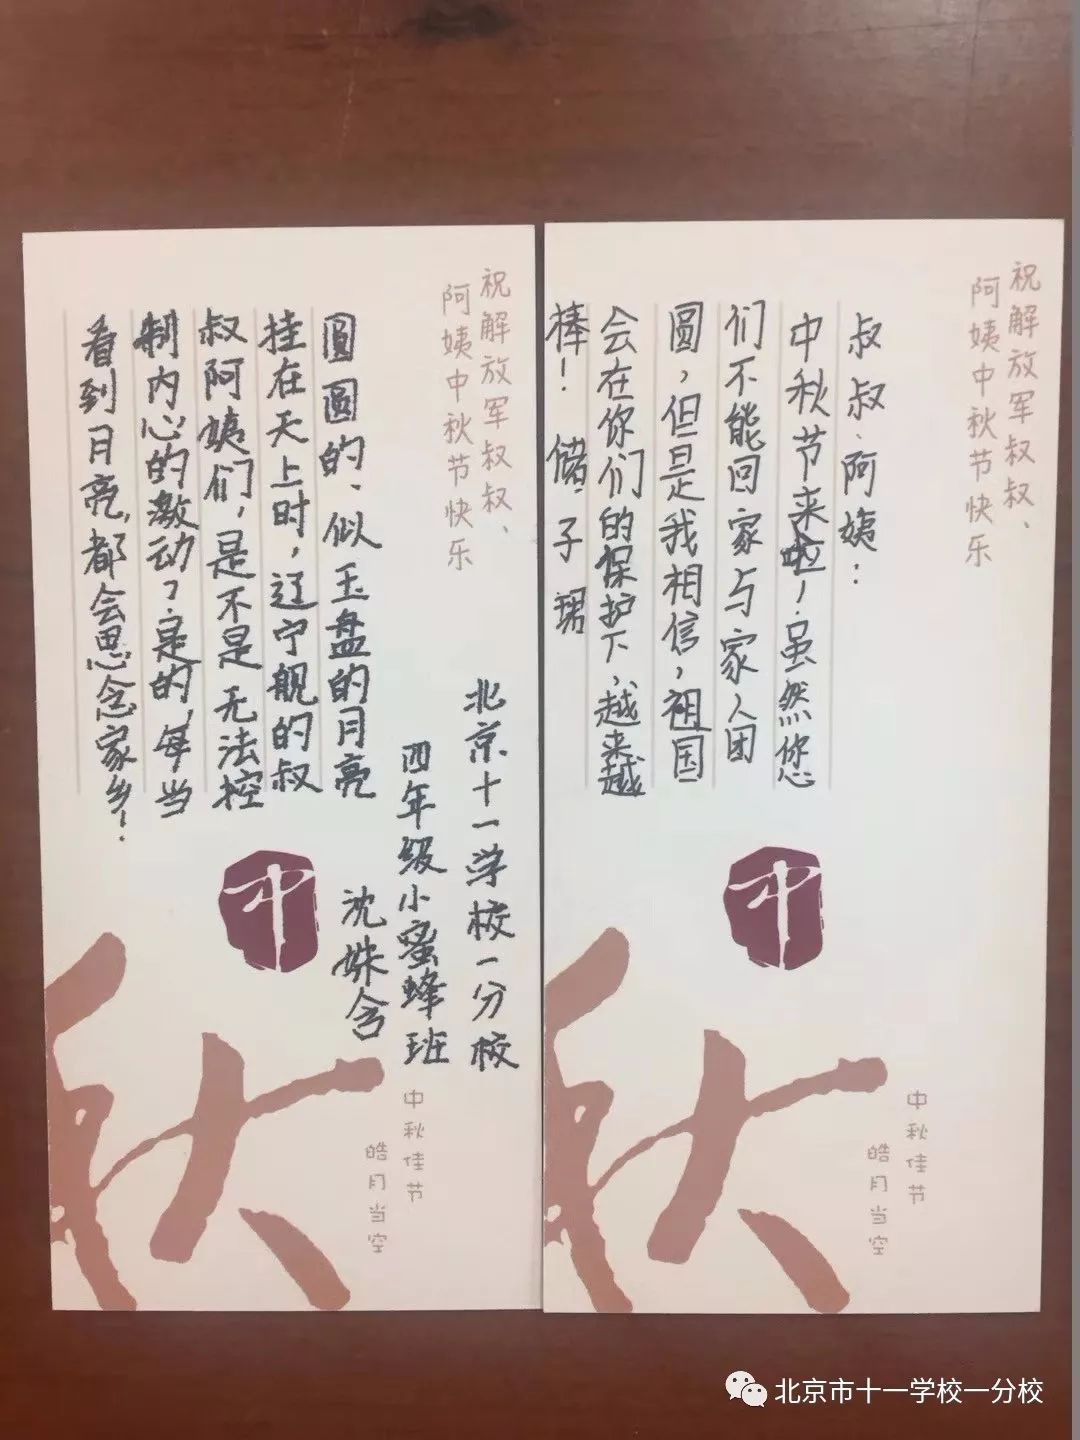 祝解放军叔叔、
阿姨中秋节快乐
叔叔、阿姨：
中秋节来啦！虽然您
们不能回家与家人团
圆，但是我相信，祖国
会在你们的保护下，越来越
棒！ 储子珺
中
秋
中秋佳节
皓月当空
祝解放军叔叔、
阿姨中秋节快乐
圆圆的、似玉盘的月亮
挂在天上时，辽宁舰的叔
叔阿姨们，是不是无法控
制内心的激动了？是的，每当
看到月亮，都会思念家乡！
北京十一学校一分校
四年级小蜜蜂班
沈姝含
中
秋
中秋佳节
皓月当空
北京市十一学校一分校